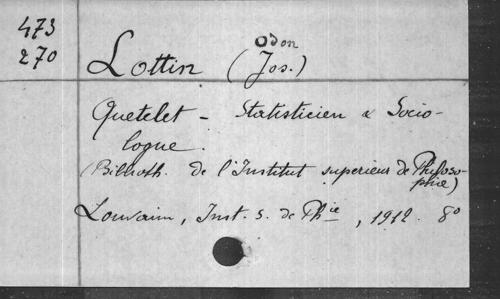 473
270
Odon
Lottin (Jos.)
Quetelet - Statisticien & Socio-
logue.
(Biblioth. de l'Institut superieur de Philoso-
phie)
Louvain, Inst. s. de Phie, 1912 8°